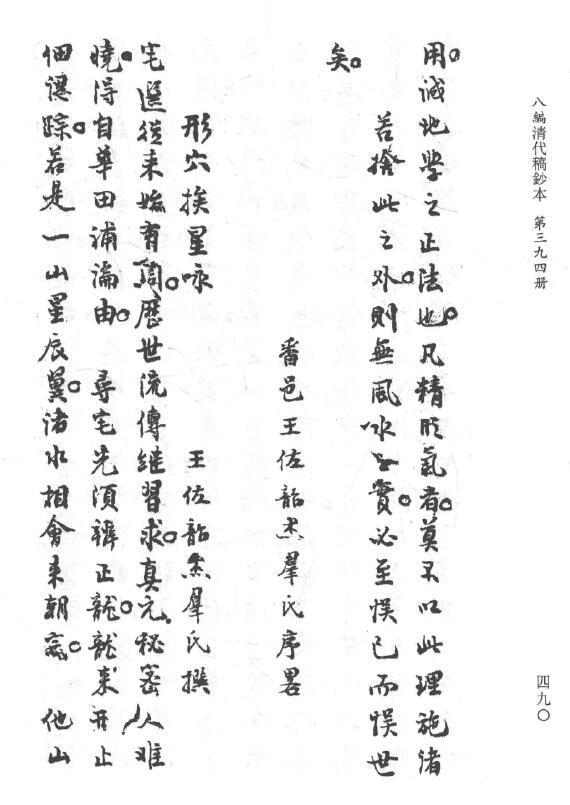 八編清代稿鈔本　第三九四册
四九〇
用。誠地學之正法也。凡精氣者。莫不以此理施諸
若捨此之外。則無風水之實。必至悞己而悞世
矣。
番邑王佐韶羣氏序畧
形穴挨星咏　王佐韶羣氏撰
宅選從来始有。歷世流傳繼習求。真元秘密人难
曉。得自華田浦瀹由。尋宅先須辨正龍。龍来止
细認踪。若是一山星辰異。渚水相會来朝。他山